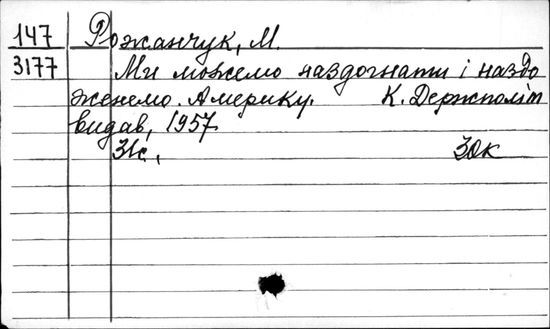 147 Рожанчук, М.
3177 Ми можемо наздогнати і наздо
женемо Америку. К. Держполіт
видав, 1957
31с, 30к